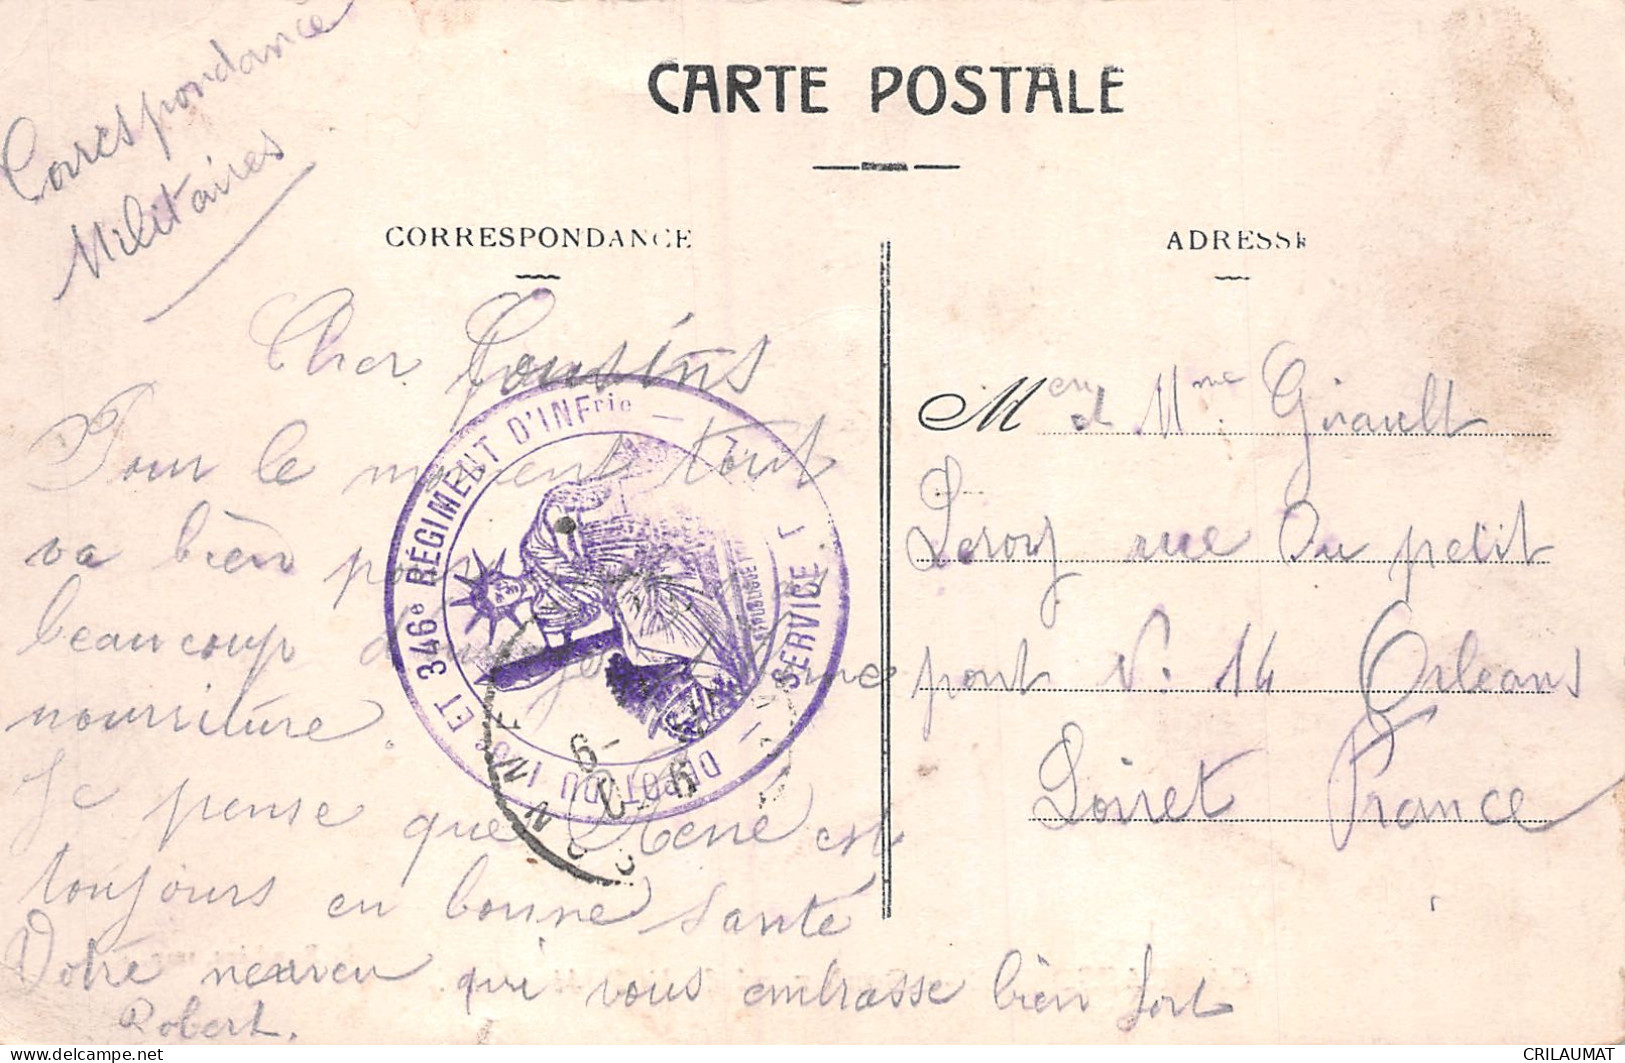 Correspondance
Militaires
CARTE POSTALE
CORRESPONDANCE
ADRESSE
Cher Cousins
Pour le moment tout
va bien pour
beaucoup
nourriture.
Je pense que René est
toujours en bonne santé
Votre neuveu qui vous embrasse bien fort
Robert.
M eur et Mme Girault
Leroy rue Du petit
pont N. 14 Orléans
Loiret France
DÉPOT DU ET 346e RÉGIMENT D'INFrie — SERVICE
RÉPUBLIQUE FRANÇAISE
CRILAUMAT